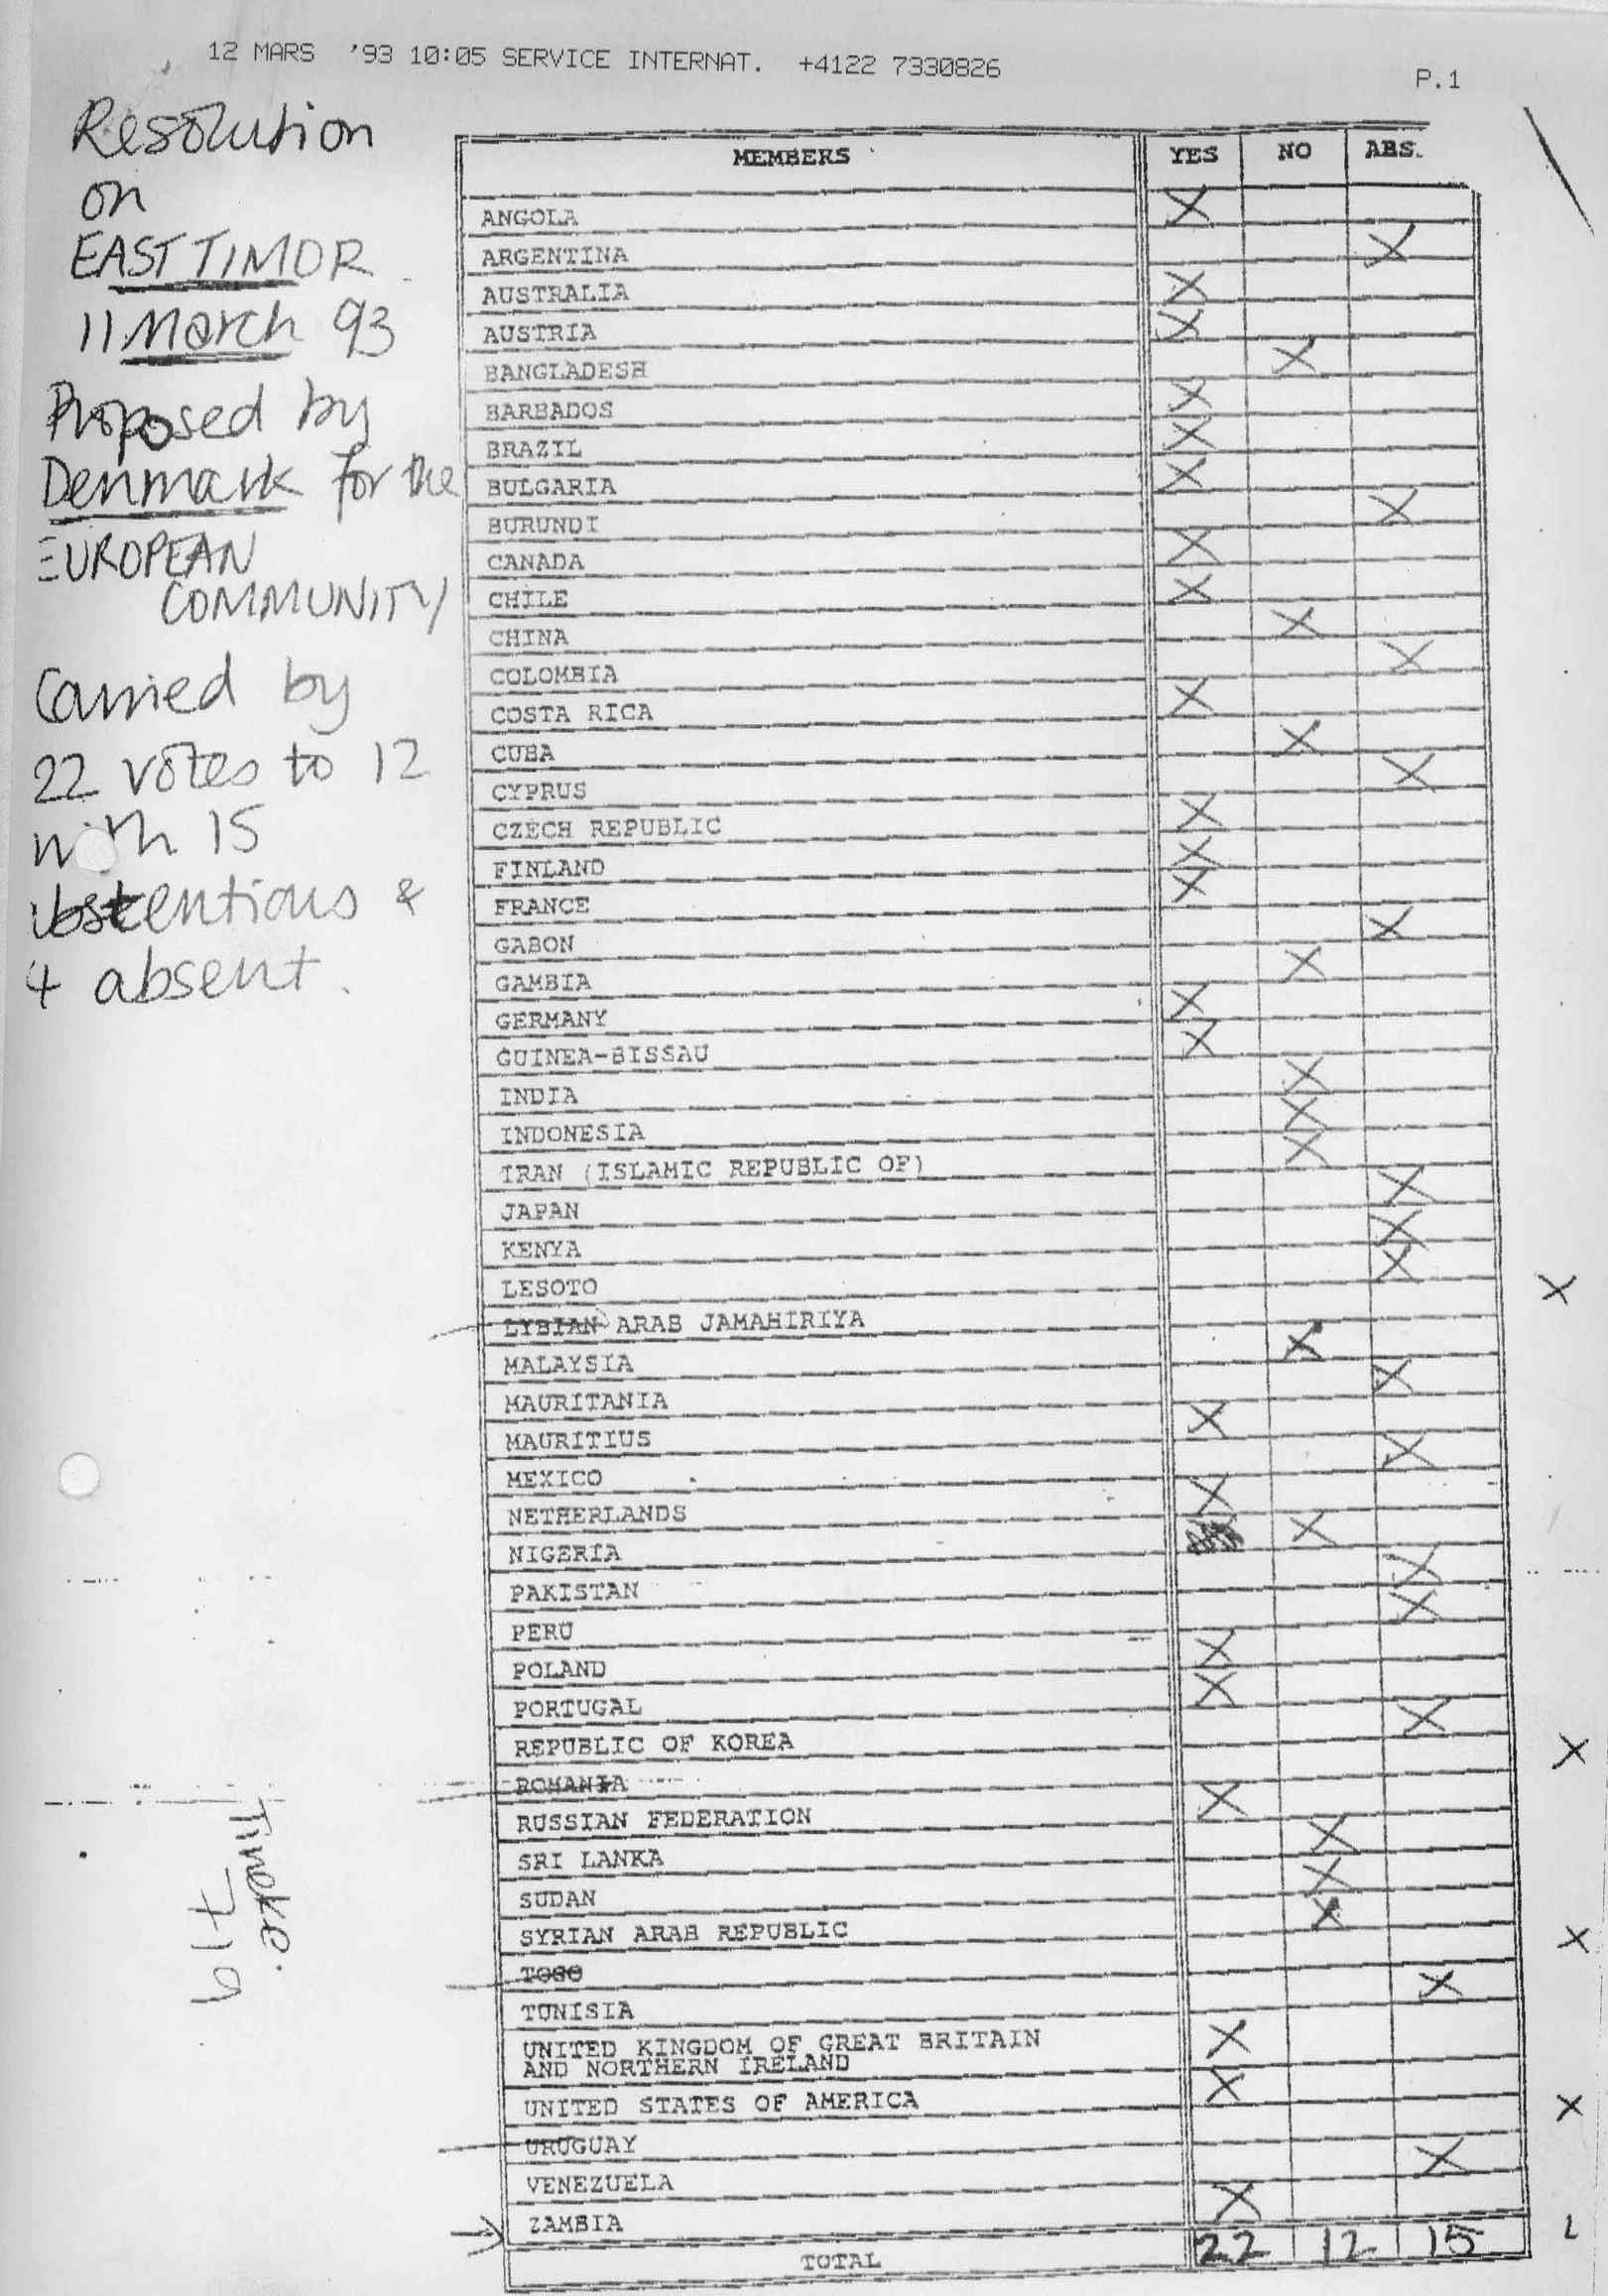 12 MARS '93 10:05 SERVICE INTERNAT. +4122 7330826 P.1
Resolution
on
EAST TIMOR
11 March 93
Proposed by
Denmark for the
EUROPEAN
COMMUNITY
Carried by
22 votes to 12
with 15
abstentions &
4 absent.
MEMBERS YES NO ABS.
ANGOLA X
ARGENTINA X
AUSTRALIA X
AUSTRIA X
BANGLADESH X
BARBADOS X
BRAZIL X
BULGARIA X
BURUNDI X
CANADA X
CHILE X
CHINA X
COLOMBIA X
COSTA RICA X
CUBA X
CYPRUS X
CZECH REPUBLIC X
FINLAND X
FRANCE X
GABON X
GAMBIA X
GERMANY X
GUINEA-BISSAU X
INDIA X
INDONESIA X
IRAN (ISLAMIC REPUBLIC OF) X
JAPAN X
KENYA X
LESOTO X
LYBIAN ARAB JAMAHIRIYA X
MALAYSIA X
MAURITANIA X
MAURITIUS X
MEXICO X
NETHERLANDS X
NIGERIA X
PAKISTAN X
PERU X
POLAND X
PORTUGAL X
REPUBLIC OF KOREA X
ROMANIA X
RUSSIAN FEDERATION X
SRI LANKA X
SUDAN X
SYRIAN ARAB REPUBLIC X
TOGO X
TUNISIA X
UNITED KINGDOM OF GREAT BRITAIN
AND NORTHERN IRELAND X
UNITED STATES OF AMERICA X
URUGUAY X
VENEZUELA X
ZAMBIA X
TOTAL 22 12 15
Tineke.